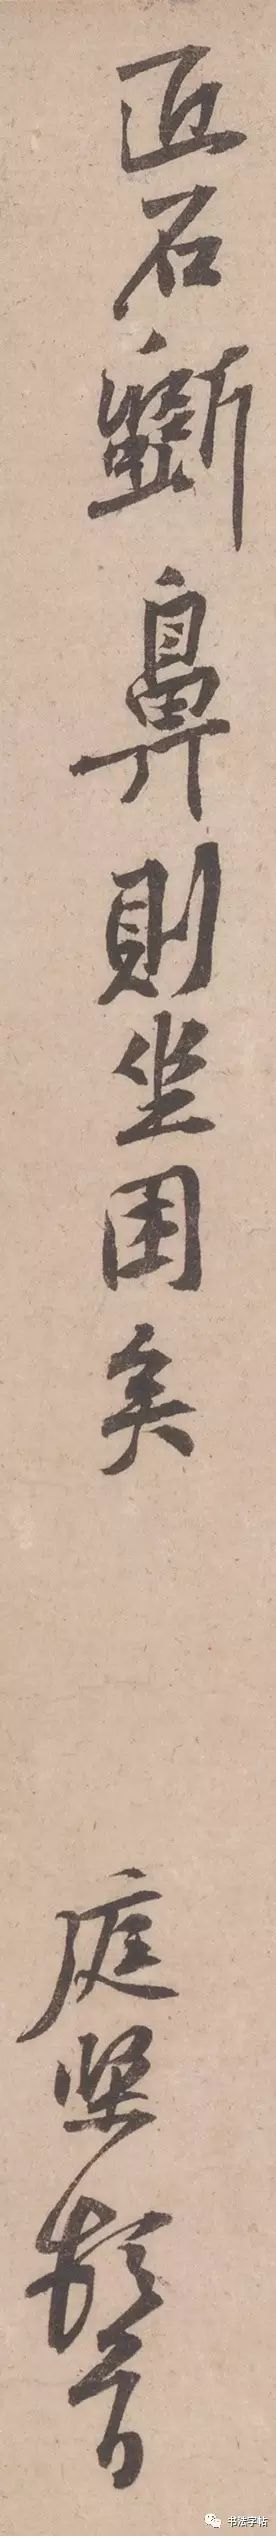 匠石斲鼻則坐困矣
庭堅頓首
书法字帖